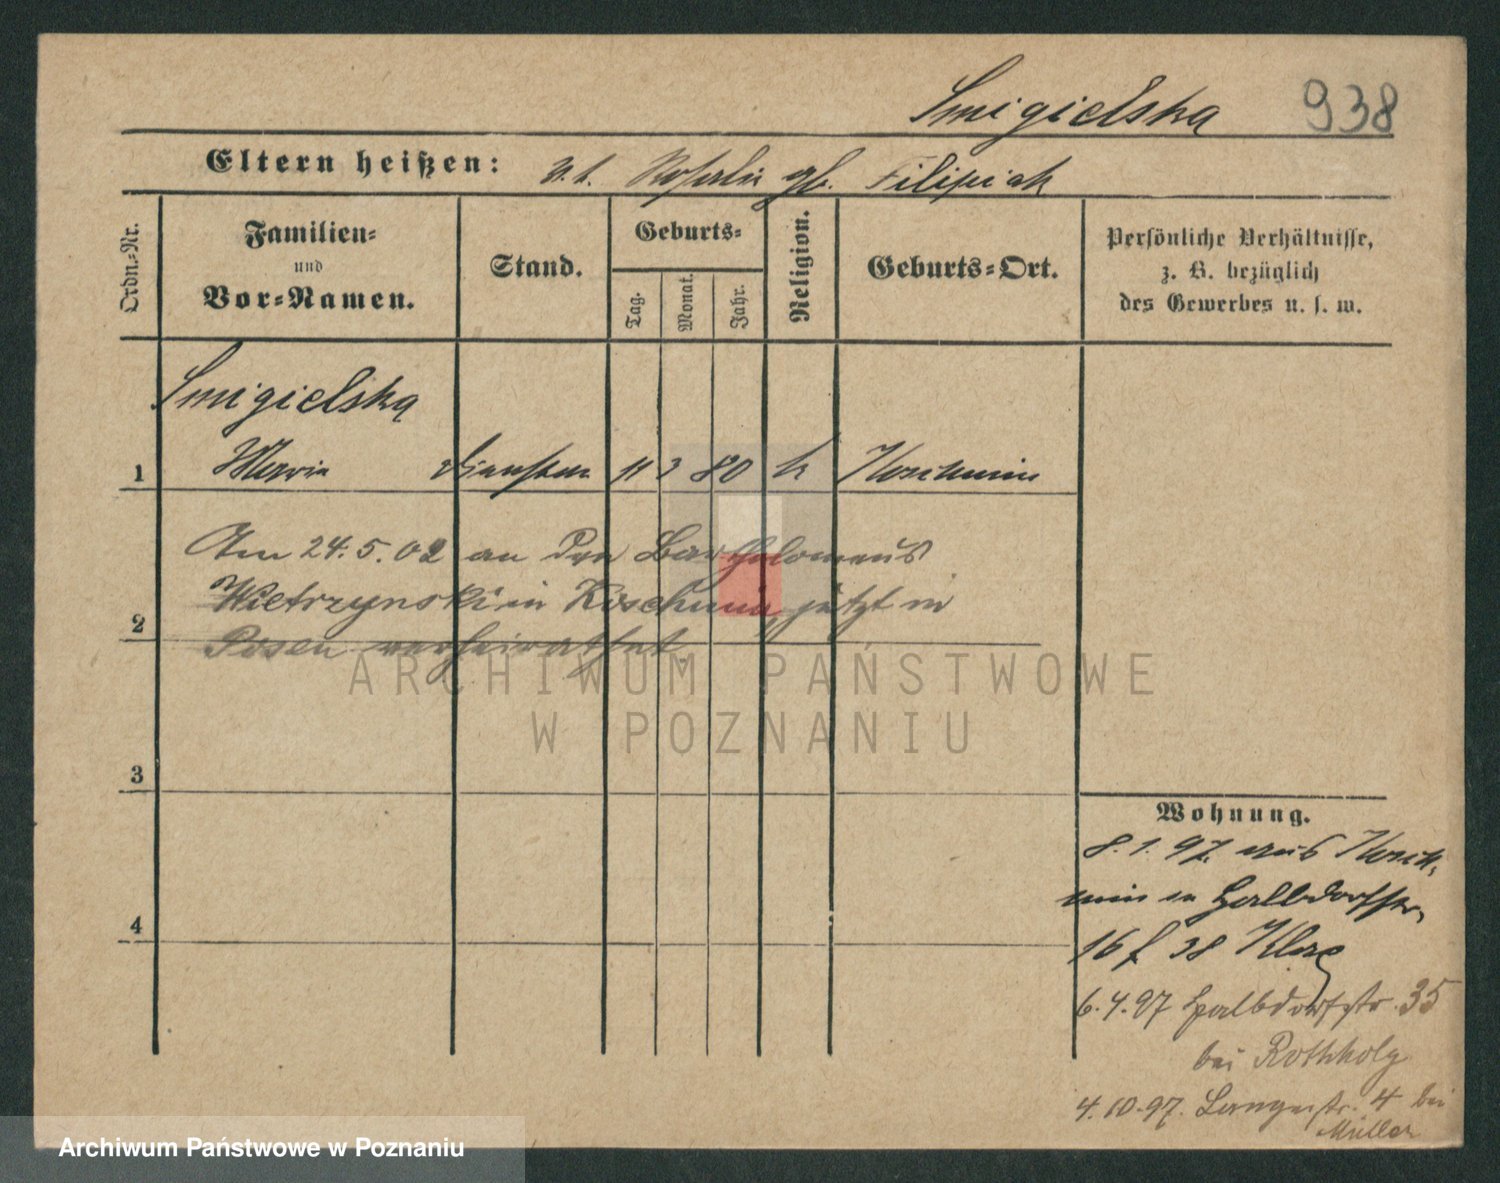 Smigielska 938
Eltern heißen: Rosalie gb. Filipiak
Ordn.-Nr.
Familien-
und
Vor-Namen.
Stand.
Geburts-
Tag.
Monat.
Jahr.
Religion.
Geburts-Ort.
Persönliche Verhältnisse,
z. B. bezüglich
des Gewerbes u. s. w.
Smigielska
1 Maria 11 3 80 k Koschmin
Am 24.5.02 an den Bartholomeus
Wietrzynski in Koschmin, jetzt in
2
Posen verheirathet.
ARCHIWUM PAŃSTWOWE
W POZNANIU
3
4
Wohnung.
8.1.97. aus Kosch-
min n Halbdorfstr.
16 38
6.4.97 Halbdorfstr. 35
bei Rothholz
4.10.97. Langestr. 4 bei
Müller
Archiwum Państwowe w Poznaniu